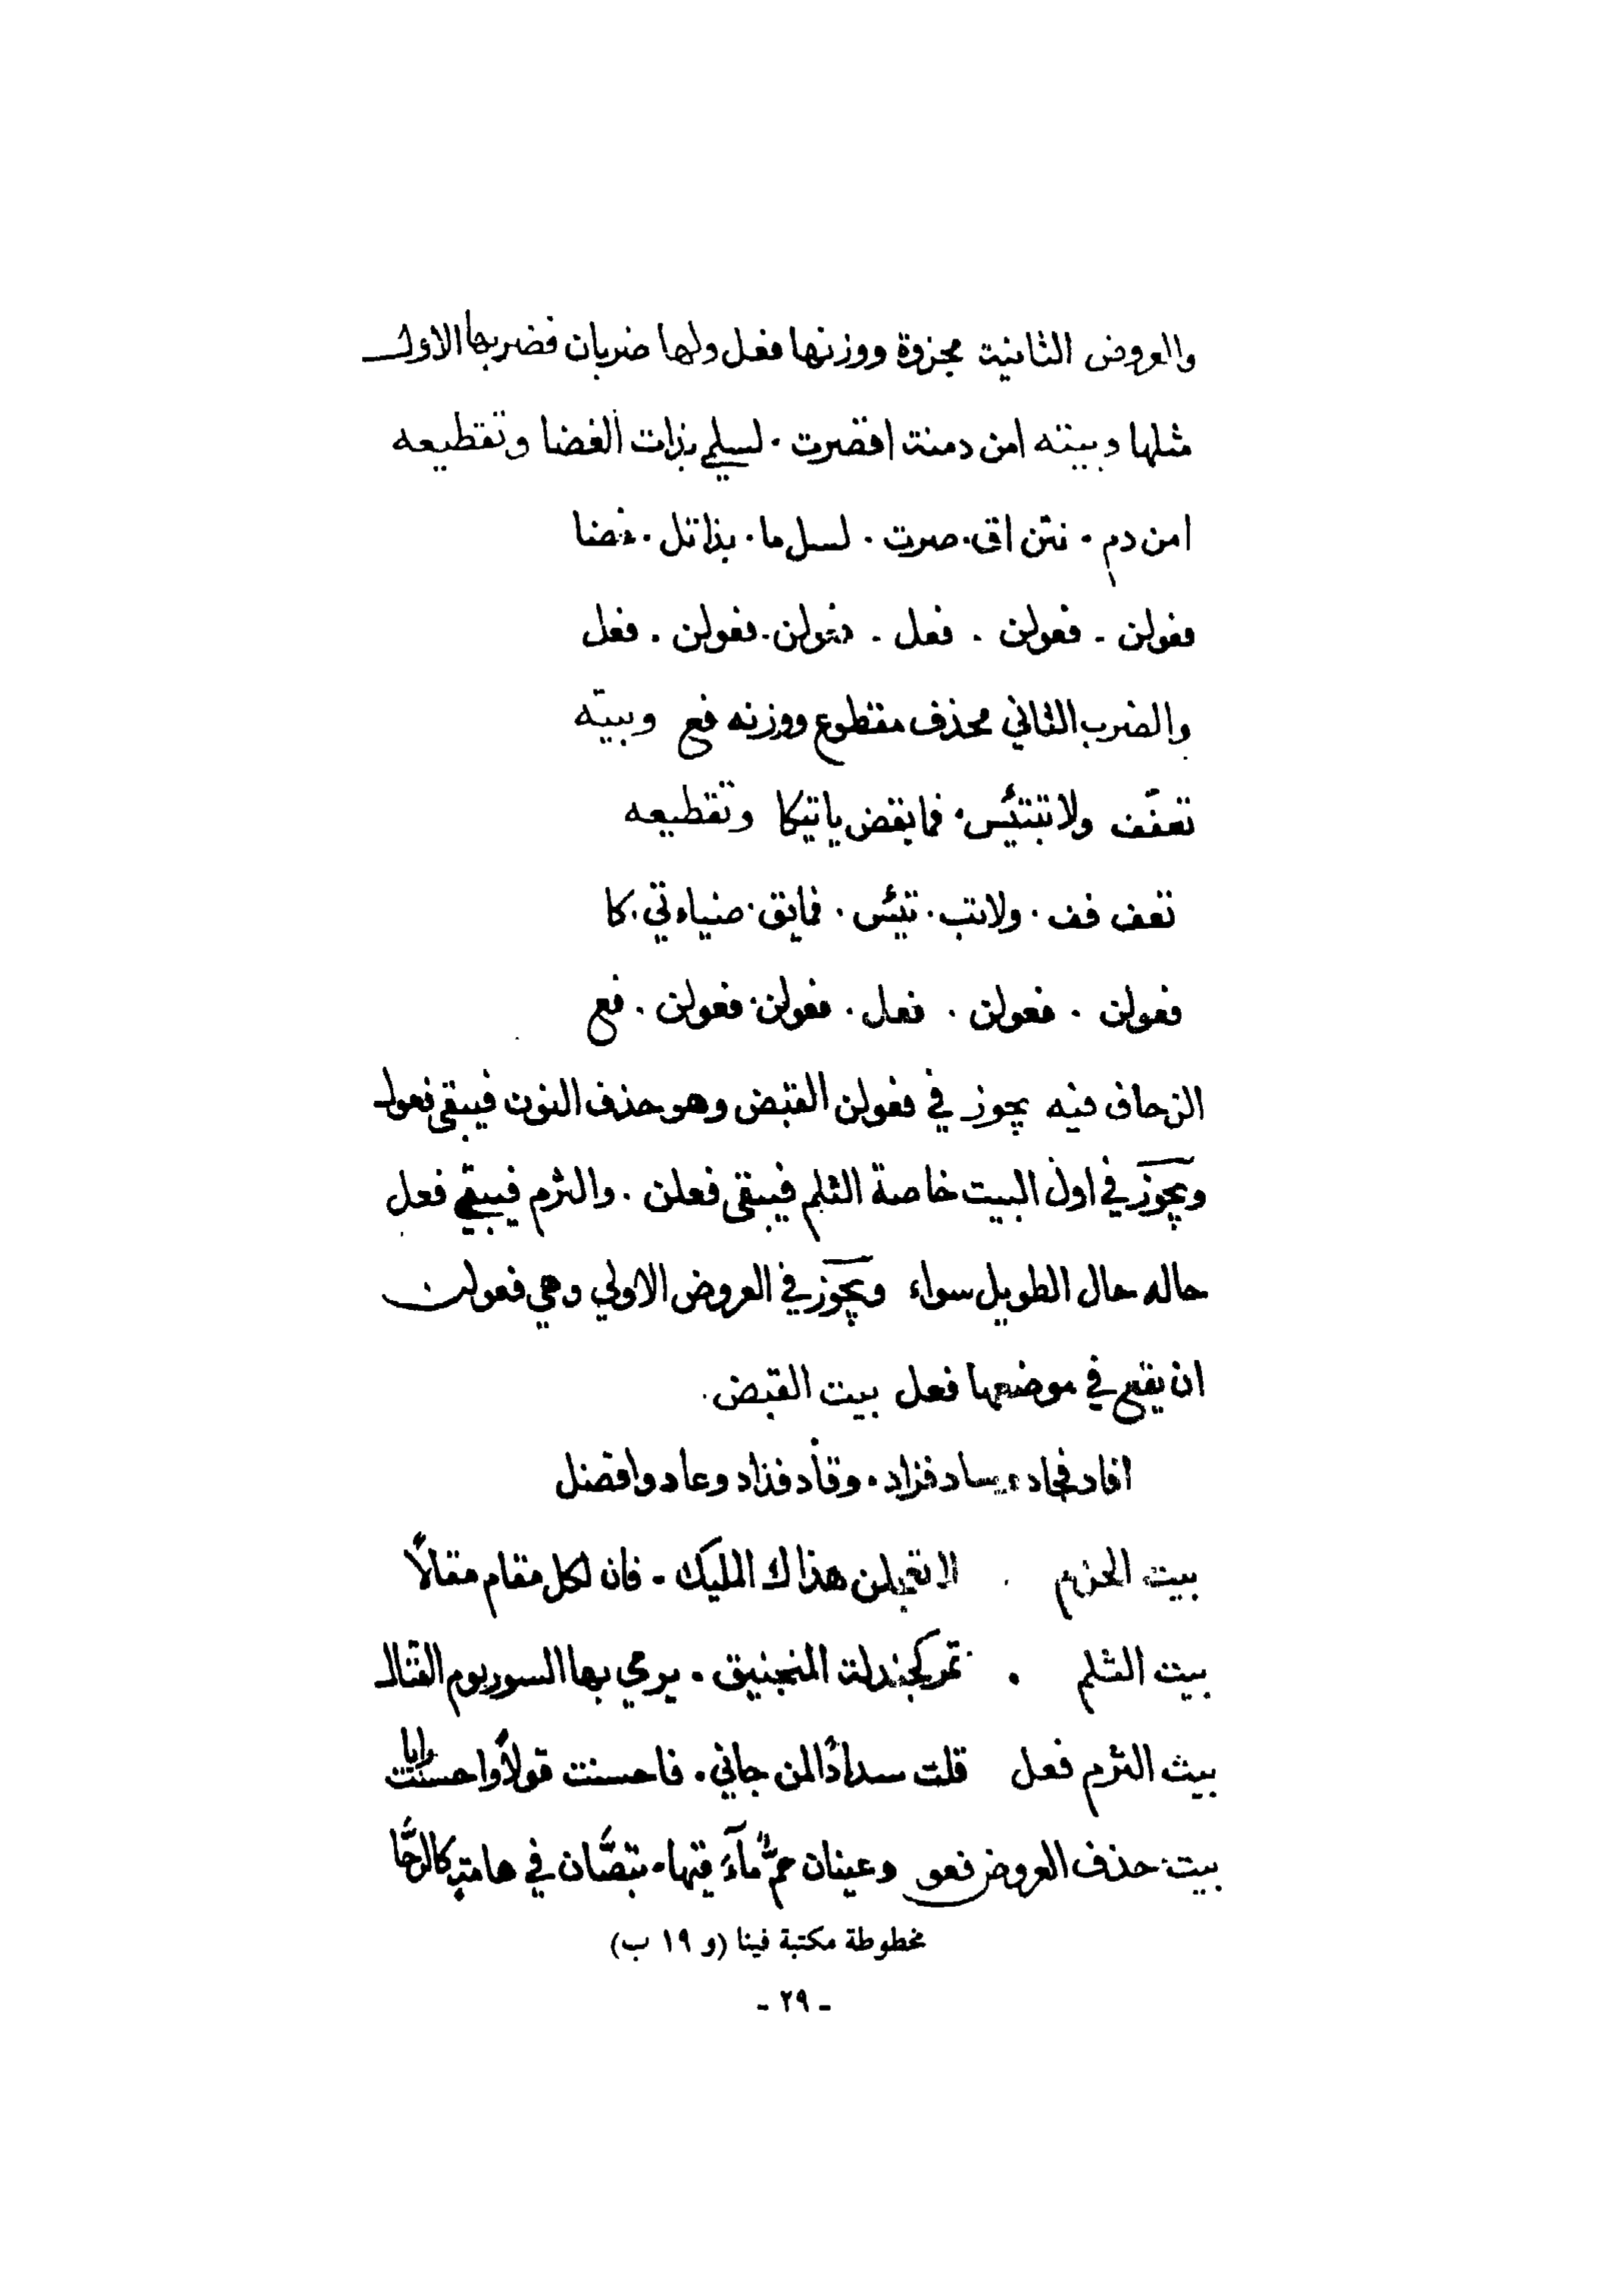 والعروض الثانية مجزوة ووزنها فعل ولها ضربان فضربها الاول
مثلها وبيته امن دمنة اقصرت . لسلمي بذات الغضا وتقطيعه
امن دم . نتن اق . صرت . لسل ما . بذاتل . غضا
فعولن . فعولن . فعل . فعولن . فعولن . فعل
والضرب الثاني محذف مقطوع ووزنه فع وبيته
تعفف ولا تبتئس . فما يقض ياتيكا وتقطيعه
تعف فف . ولا تب . تئس . فما يق . ضياءتي . كا
فعولن . فعولن . فعل . فعولن . فعولن . فع
الزحاف فيه يجوز في فعولن القبض وهو حذف النون فيبقى فعول
ويجوز في اول البيت خاصة الثلم فيبقى فعلن . والثرم فيبقي فعل
حاله حال الطويل سواء ويجوز في العروض الاولي وهي فعولن
ان يقع في موضعها فعل بيت القبض .
افاد فجاد وساد فزاد . وقاد فزاد وعاد وافضل
بيت الخزم . لا تعجلن هذاك المليك . فان لكل مقام مقالاً
بيت الثلم . تمر كجندلة المنجنيق . يرمي بها السور يوم القتال
بيث الثرم فعل قلت سداداً لمن جاني . فاحسنت قولاً واحسنت رايا
بيت حذف العروض فعو وعينان حمٌّ مآء قيها . تبصَّان في هامة كالرحَّا
مخطوطة مكتبة فينا (و ١٩ ب)
- ٢٩ -